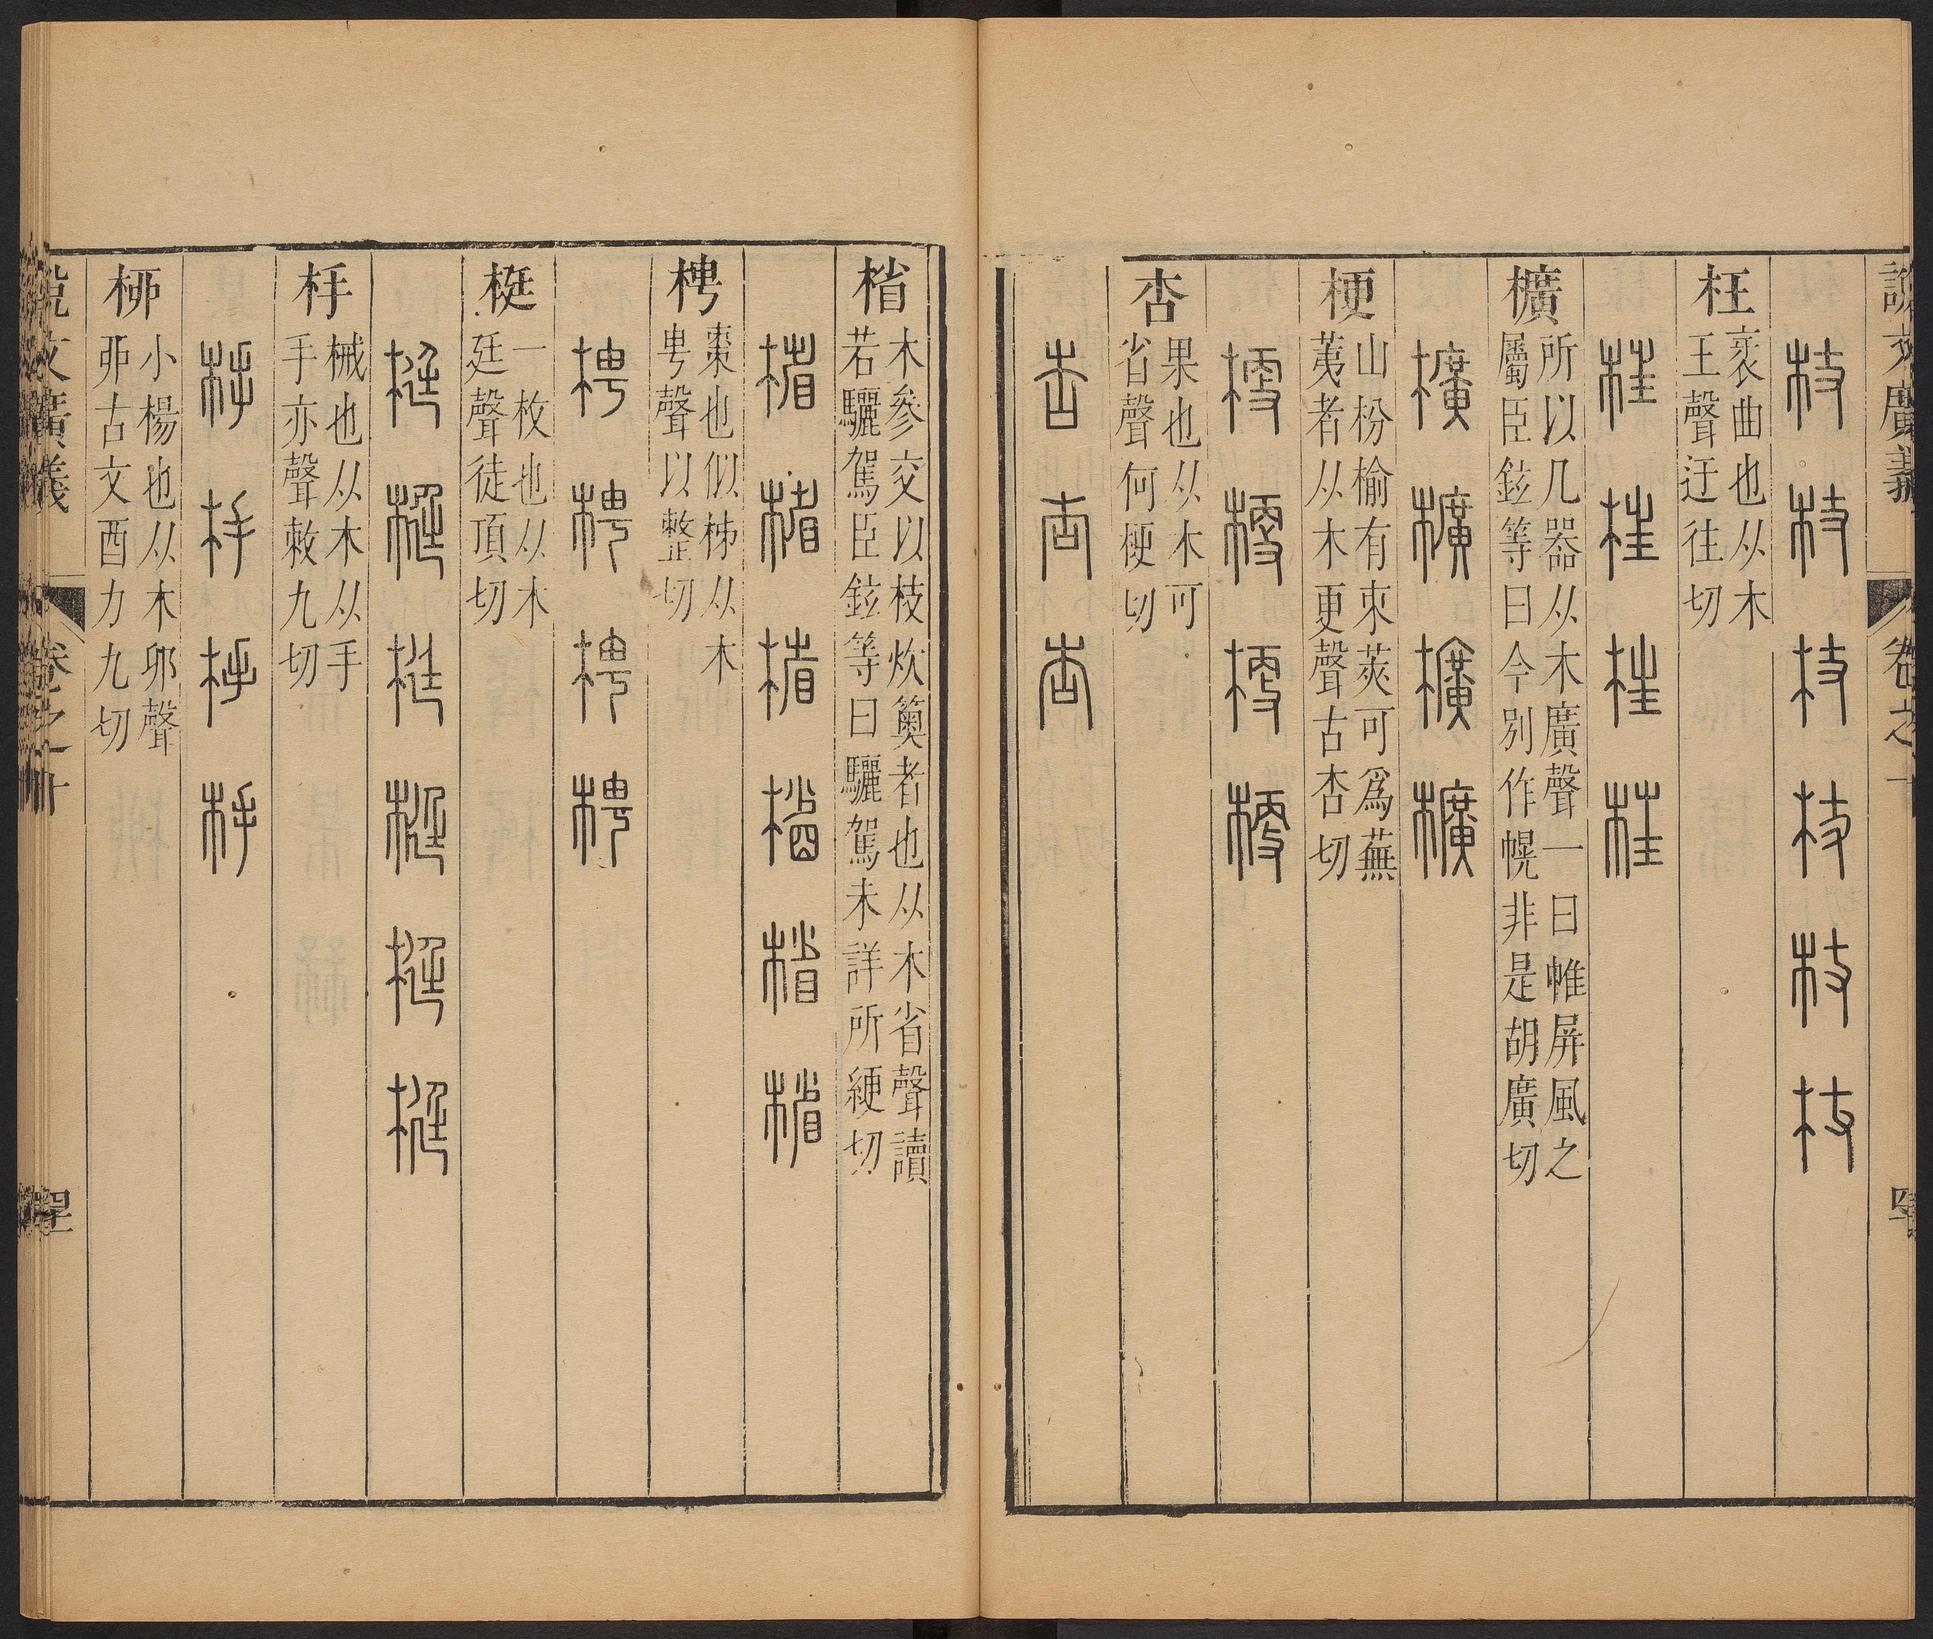 說文廣義 卷之十
枝 枝 枝 枝 枝 枝
枉
衺曲也从木
王聲迂往切
枉 枉 枉 枉
櫎
所以几器从木廣聲一曰帷屏風之
屬臣鉉等曰今別作幌非是胡廣切
櫎 櫎 櫎 櫎
梗
山枌榆有朿莢可爲蕪
荑者从木更聲古杏切
梗 梗 梗 梗
杏
果也从木可
省聲何梗切
杏 杏 杏
㮐
木參交以枝炊䉛者也从木省聲讀
若驪駕臣鉉等曰驪駕未詳所綆切
㮐 㮐 㮐 㮐 㮐 㮐
梬
棗也似柹从木
甹聲以整切
梬 梬 梬 梬
梃
一枚也从木
廷聲徒頂切
梃 梃 梃 梃 梃 梃
杽
械也从木从手
手亦聲敕九切
杽 杽 杽 杽
桺
小楊也从木丣聲
丣古文酉力九切
說文廣義 卷之十